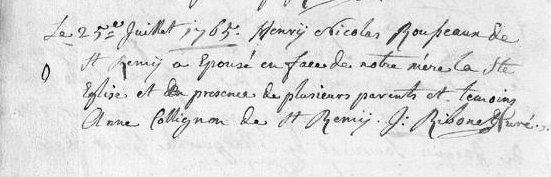 Le 25e Juillet 1765. Henrij Nicolas Roupeaux de
St Remij a Epousé en face de notre mère la Ste
Eglise et en presence de plusieurs parents et temoins
Anne Collignon de St Remij. J: Ribonet Curé.